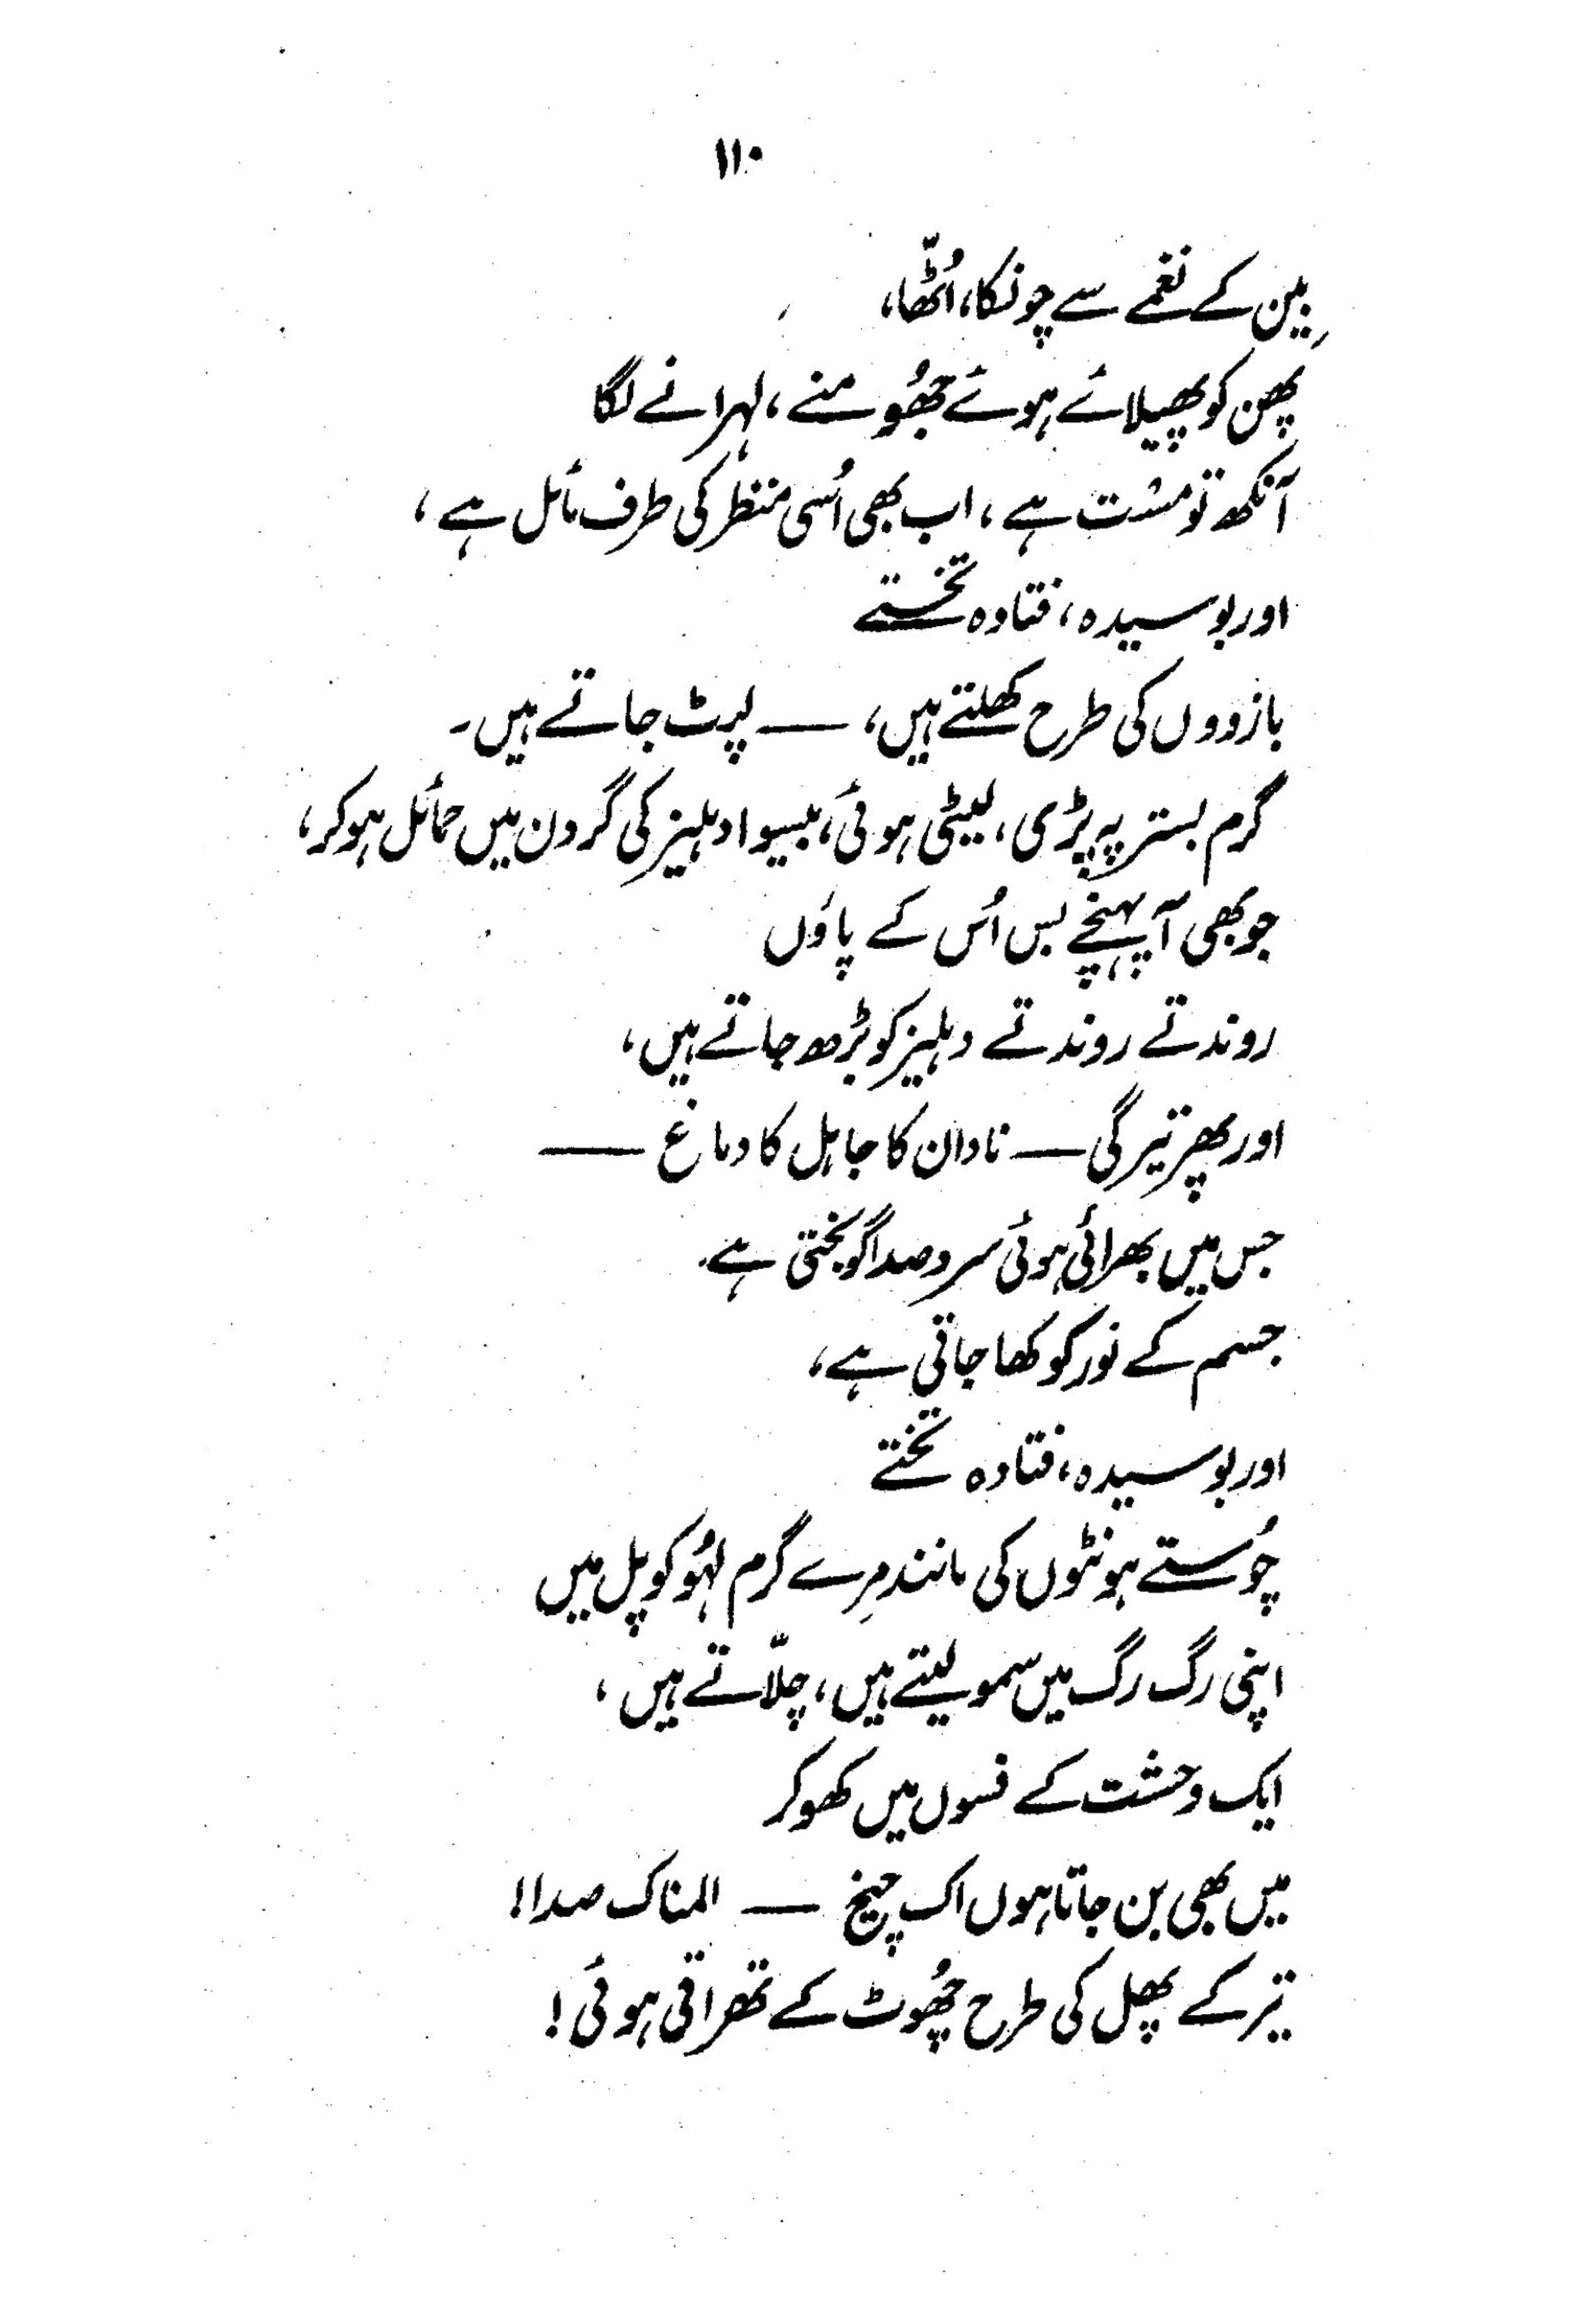 ۱۱۰
بِین کے نغمے سے چونکا، اُٹّھا،
پھن کو پھیلائے ہوئے جھُومنے، لہرانے لگا
آنکھ تو مست ہے، اب بھی اُسی منظر کی طرف مائل ہے،
اور بوسیدہ، فتادہ تختے
بازووں کی طرح کھلتے ہیں، — لپٹ جاتے ہیں۔
گرم بستر پہ پڑی، لیٹی ہوئی، بیسوا دہلیز کی گردن میں حمائل ہو کر،
جو بھی آ پہنچے بس اُس کے پاؤں
روندتے روندتے دہلیز کو بڑھ جاتے ہیں،
اور پھر تیرگی — نادان کا جاہل کا دماغ —
جس میں بھرائی ہوئی سرد صدا گونجتی ہے۔
جسم کے نور کو کھا جاتی ہے،
اور بوسیدہ، فتادہ تختے
چُوستے ہونٹوں کی مانند مِرے گرم لہُو کو پل میں
اپنی رگ رگ میں سمو لیتے ہیں، چلّاتے ہیں،
ایک وحشت کے فسوں میں کھو کر
میں بھی بن جاتا ہوں اک چیخ — المناک صدا!
تیر کے پھل کی طرح چھُوٹ کے تھراتی ہوئی!